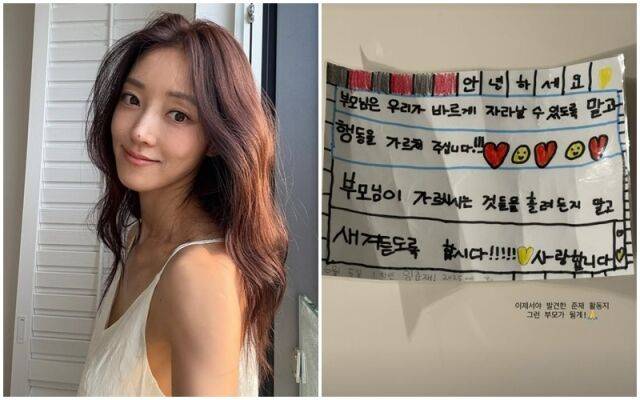 안녕하세요
부모님은 우리가 바르게 자라날 수 있도록 말고
행동을 가르쳐 주십니다!!!
부모님이 가르쳐시는 것들을 흘려듣지 말고
새겨들도록 합시다!!!!!사랑합니다
1학년
이제서야 발견한 준재 활동지
그런 부모가 될게!🙏